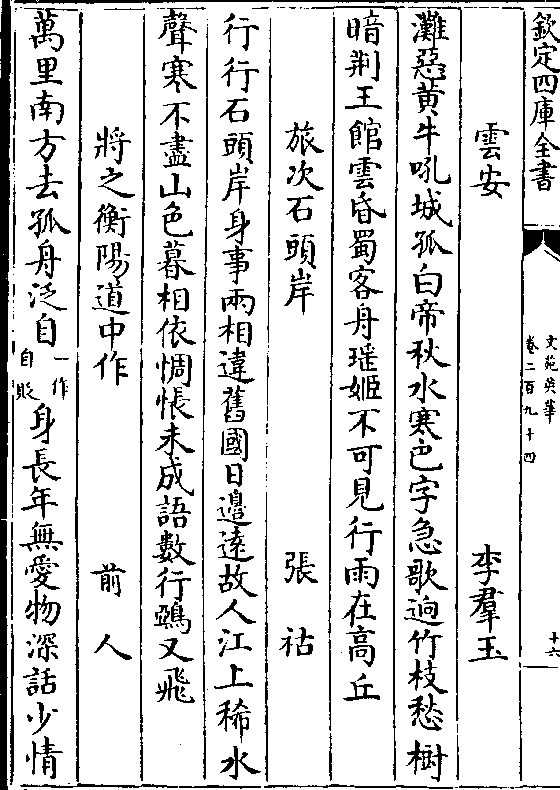 欽定四庫全書
文苑英華
卷二百九十四
十六
雲安 李羣玉
灘惡黃牛吼城孤白帝秋水寒巴字急歌逈竹枝愁樹
暗荆王館雲昏蜀客舟瑤姬不可見行雨在高丘
旅次石頭岸 張祜
行行石頭岸身事兩相違舊國日邊遠故人江上稀水
聲寒不盡山色暮相依惆悵未成語數行鵶又飛
將之衡陽道中作 前人
萬里南方去孤舟泛自一作自貶身長年無愛物深話少情